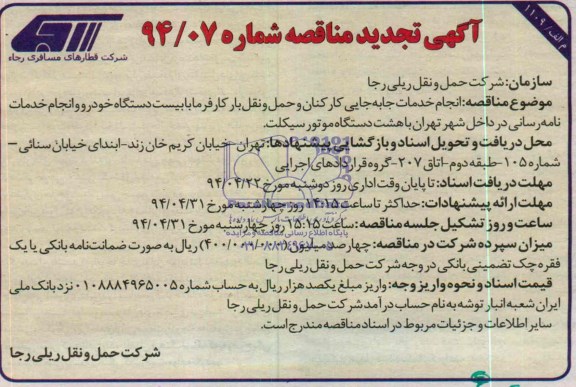 م الف/۱۱۰۹
آگهی تجدید مناقصه شماره ۹۴/۰۷
شرکت قطارهای مسافری رجاء
سازمان: شرکت حمل و نقل ریلی رجا
موضوع مناقصه: انجام خدمات جابه‌جایی کارکنان و حمل و نقل بار کارفرما با بیست دستگاه خودرو و انجام خدمات
نامه‌رسانی در داخل شهر تهران با هشت دستگاه موتور سیکلت.
محل دریافت و تحویل اسناد و بازگشایی پیشنهادها: تهران-خیابان کریم خان زند-ابتدای خیابان سنائی-
شماره ۱۰۵-طبقه دوم-اتاق ۲۰۷-گروه قراردادهای اجرایی
مهلت دریافت اسناد: تا پایان وقت اداری روز دوشنبه مورخ ۹۴/۰۴/۲۲
مهلت ارائه پیشنهادات: حداکثر تا ساعت ۱۴:۱۵ روز چهارشنبه مورخ ۹۴/۰۴/۳۱
ساعت و روز تشکیل جلسه مناقصه: ساعت ۱۵:۱۵ روز چهارشنبه مورخ ۹۴/۰۴/۳۱
میزان سپرده شرکت در مناقصه: چهارصد میلیون (۴۰۰/۰۰۰/۰۰۰) ریال به صورت ضمانت‌نامه بانکی یا یک
فقره چک تضمینی بانکی در وجه شرکت حمل و نقل ریلی رجا
قیمت اسناد و نحوه واریز وجه: واریز مبلغ یکصد هزار ریال به حساب شماره ۰۱۰۸۸۸۴۹۶۵۰۰۵ نزد بانک ملی
ایران شعبه انبار توشه به نام حساب درآمد شرکت حمل و نقل ریلی رجا
سایر اطلاعات و جزئیات مربوط در اسناد مناقصه مندرج است.
شرکت حمل و نقل ریلی رجا